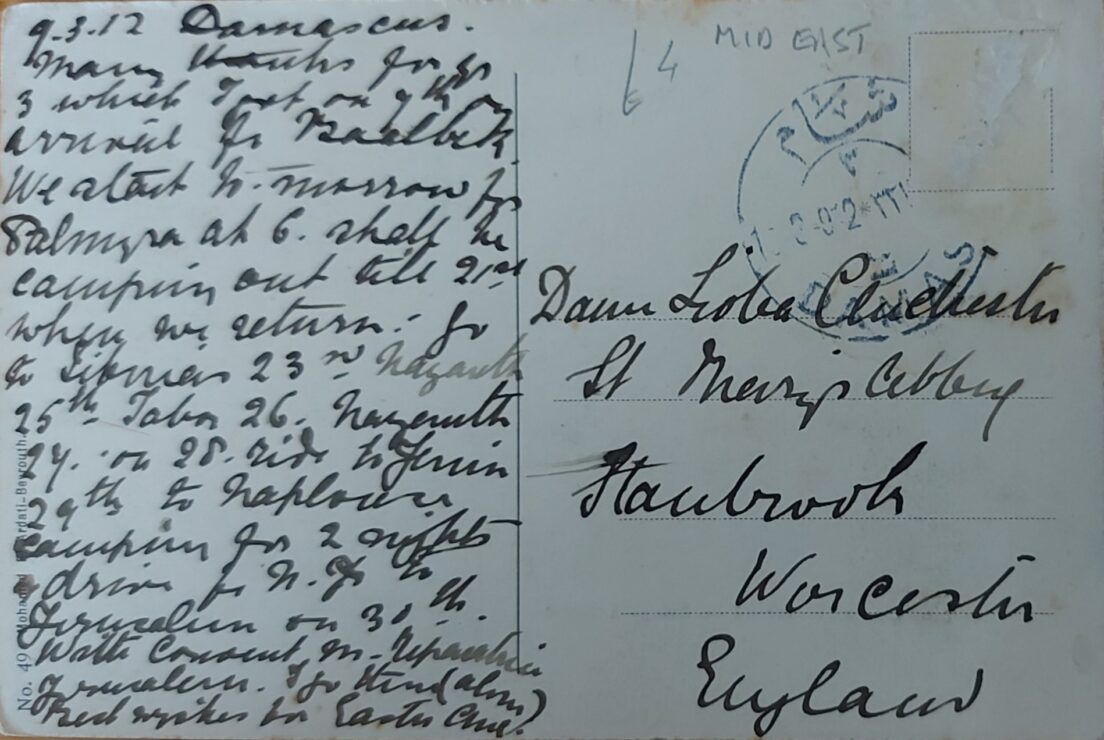 9.3.12 Damascus.
Many thanks for yrs
3 which I got on 9th on
arrival fr Baalbek.
We start to-morrow for
Palmyra at 6. shall be
camping out till 21st
when we return. Go
to Tiberias 23rd Nazareth
25th Tabor 26. Nazareth
27. on 28. ride to Jenin
29th to Naplouse
camping for 2 nights
& drive fr N. to
Jerusalem on 30th.
Write Convent M. Réparatrice
Jerusalem. I go there (alone)
Best wishes for Easter
No. 49 Mohamed Beyrouth
MID EAST
£4
DAMAS
Dame Lioba
St Mary's Abbey
Stanbrook
Worcester
England